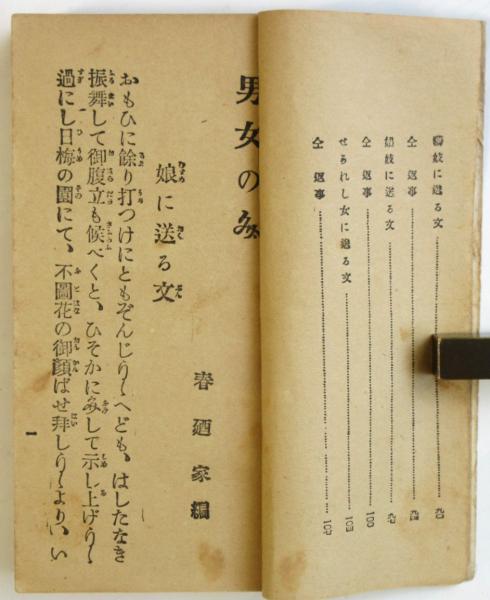 藝妓に送る文…九一
仝 返事…九四
娼妓に送る文…九七
仝 返事…一〇〇
せかれし女に送る文…一〇四
仝 返事…一〇七
男女の
春廼家編
娘に送る文
おもひに餘り打つけにともぞんじ候へども、はしたなき
振舞して御腹立も候べくと、ひそかに文して示し上げ候
過にし日梅の園にて、不圖花の御顏ばせ拜し候より、い
一